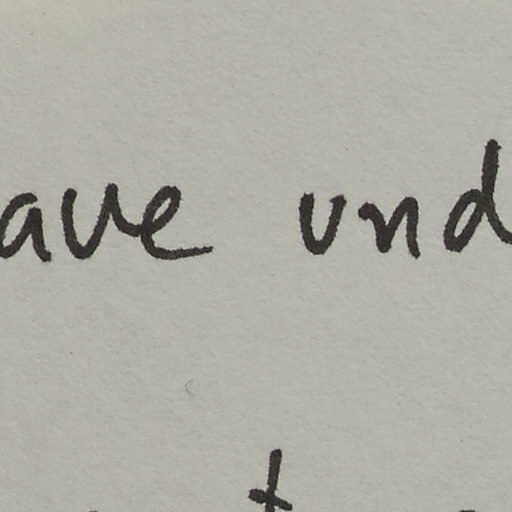 ave und
t